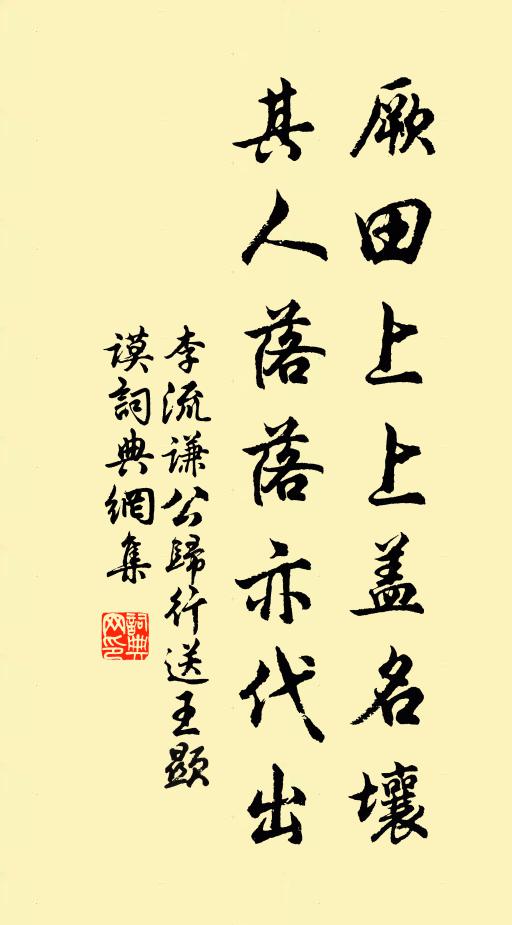 厥田上上盖名壤
其人落落亦代出
李流谦公歸行送王顕
谟詞典網集
詞典网印